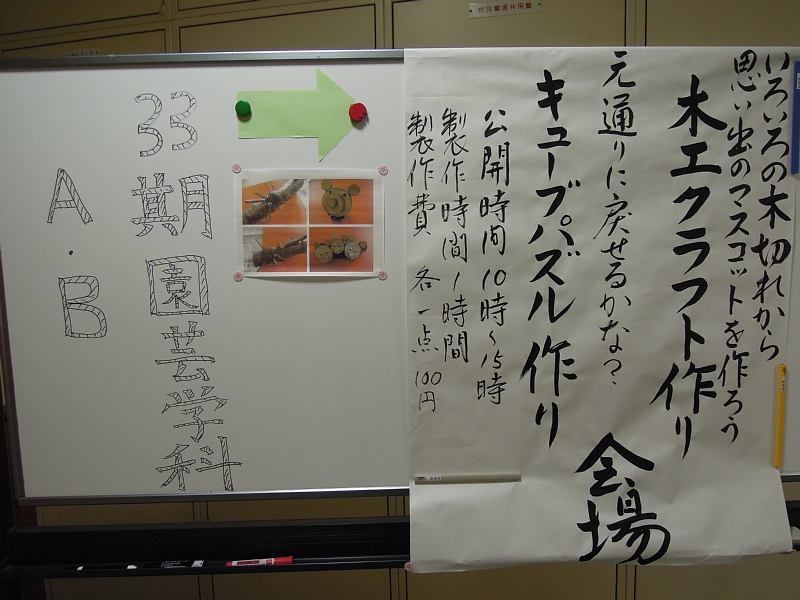 防災電源共用盤
いろいろの木切れから
思い出のマスコットを作ろう
木工クラフト作り
元通りに戻せるかな?
キューブパズル作り
公開時間 10時~15時
製作時間 1時間
製作費 各一点 100円
会場
33期園芸学科
A・B